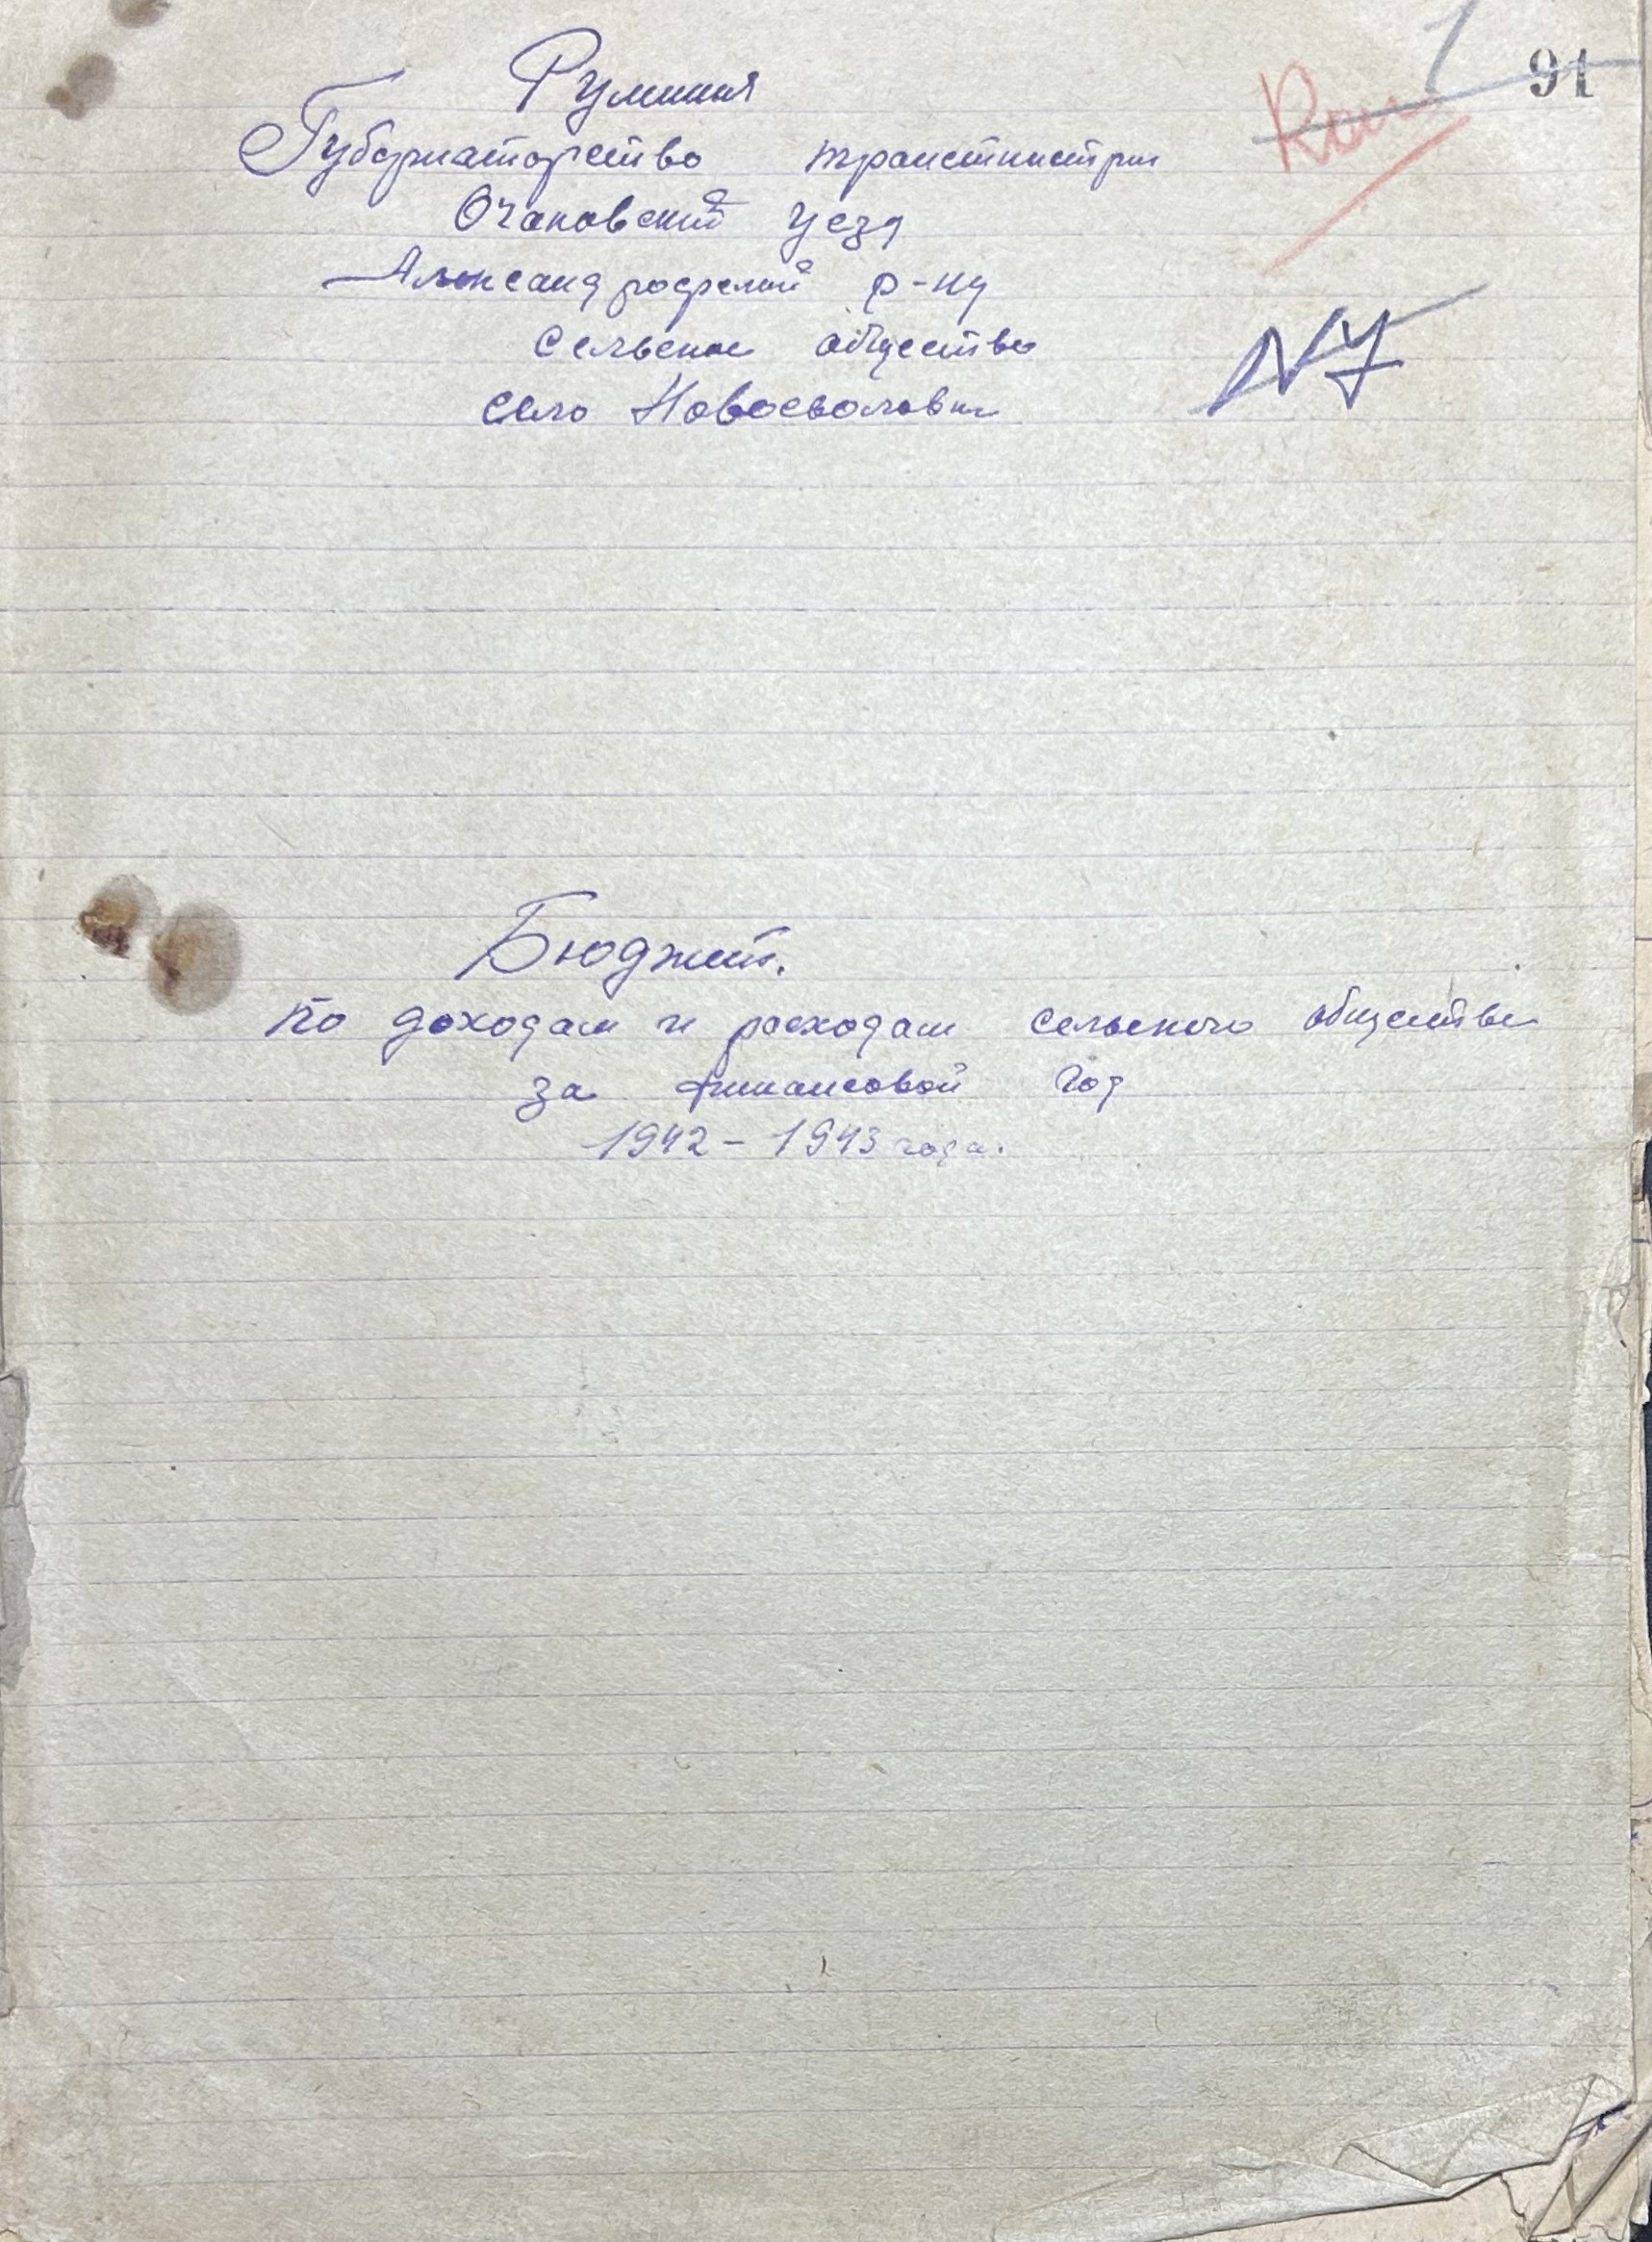 91
Румыния
Губернаторство транстнистрии
Очановский уезд
Александродрский р-нц
Сельское общество
село Новосволовка
Бюджет.
по доходам и расходам сельского общества
за финансовой год
1942 – 1943 года.